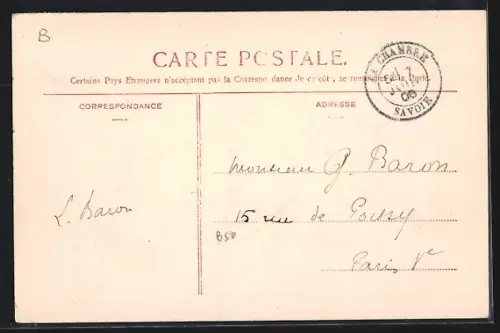 B
CARTE POSTALE.
Certains Pays Etrangers n'acceptant pas la Correspondance de ce côt, se renseigner à la Poste.
CORRESPONDANCE
ADRESSE
LA CHAMBRE
7
JUIN
06
SAVOIE
Monsieur G. Baron
L. Baron
15 rue de Poissy
B50
Paris Ve